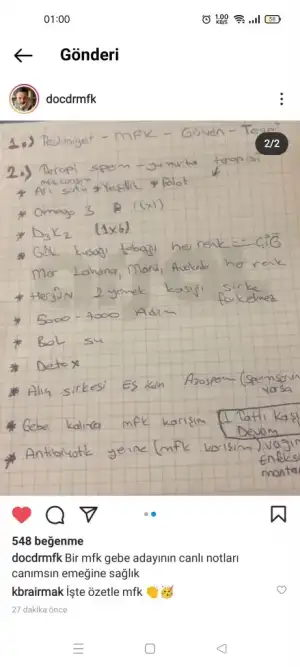 01:00
1.00 KB/S
38
Gönderi
docdrmfk
2/2
1.) - MFK - Güven -
2.) Terapi sperm - yumurta terapisi
* Arı sütü * Yeşillik * Polat
* Omega 3 (1x1)
* D3K2 (1x6)
* Gök kuşağı tabağı her renk = ÇİĞ
Mor Lahana, Marul, Avokado her renk
* Hergün 2 yemek kaşığı sirke
farketmez
* 5000 - 7000 Adım
* Bol su
* Detox
* Alıç sirkesi Eş için Azospermi
varsa
* Gebe kalınca mfk karışım 1 Tatlı Kaş
Devam
* Antibiyotik yerine (mfk karışım)
548 beğenme
docdrmfk Bir mfk gebe adayının canlı notları
canımsın emeğine sağlık
kbrairmak İşte özetle mfk 👏🥳
27 dakika önce